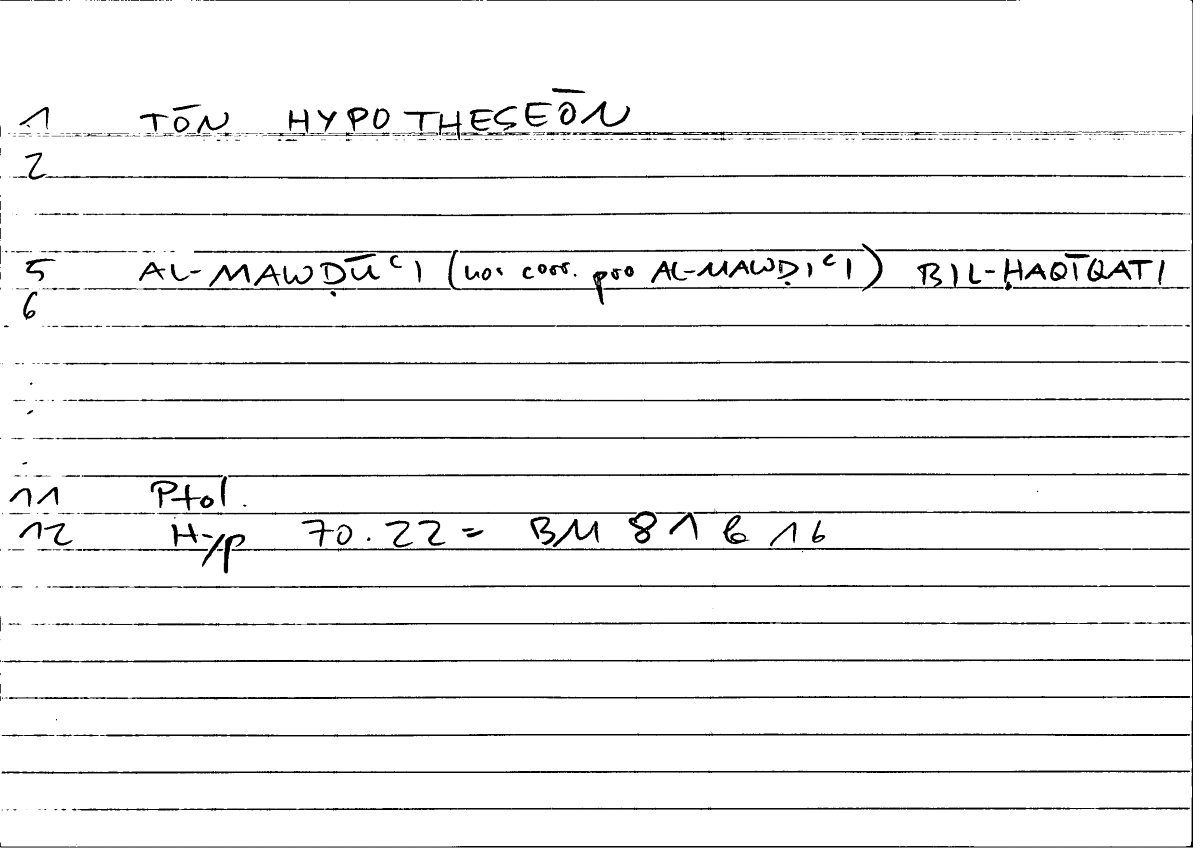 1 TŌN HYPOTHESEŌN
2
5 AL-MAWḌŪʿI (nos corr. pro AL-MAWḌIʿI) BIL-ḤAQĪQATI
6
.
.
.
11 Ptol.
12 Hyp 70.22 = BM 81 b 16